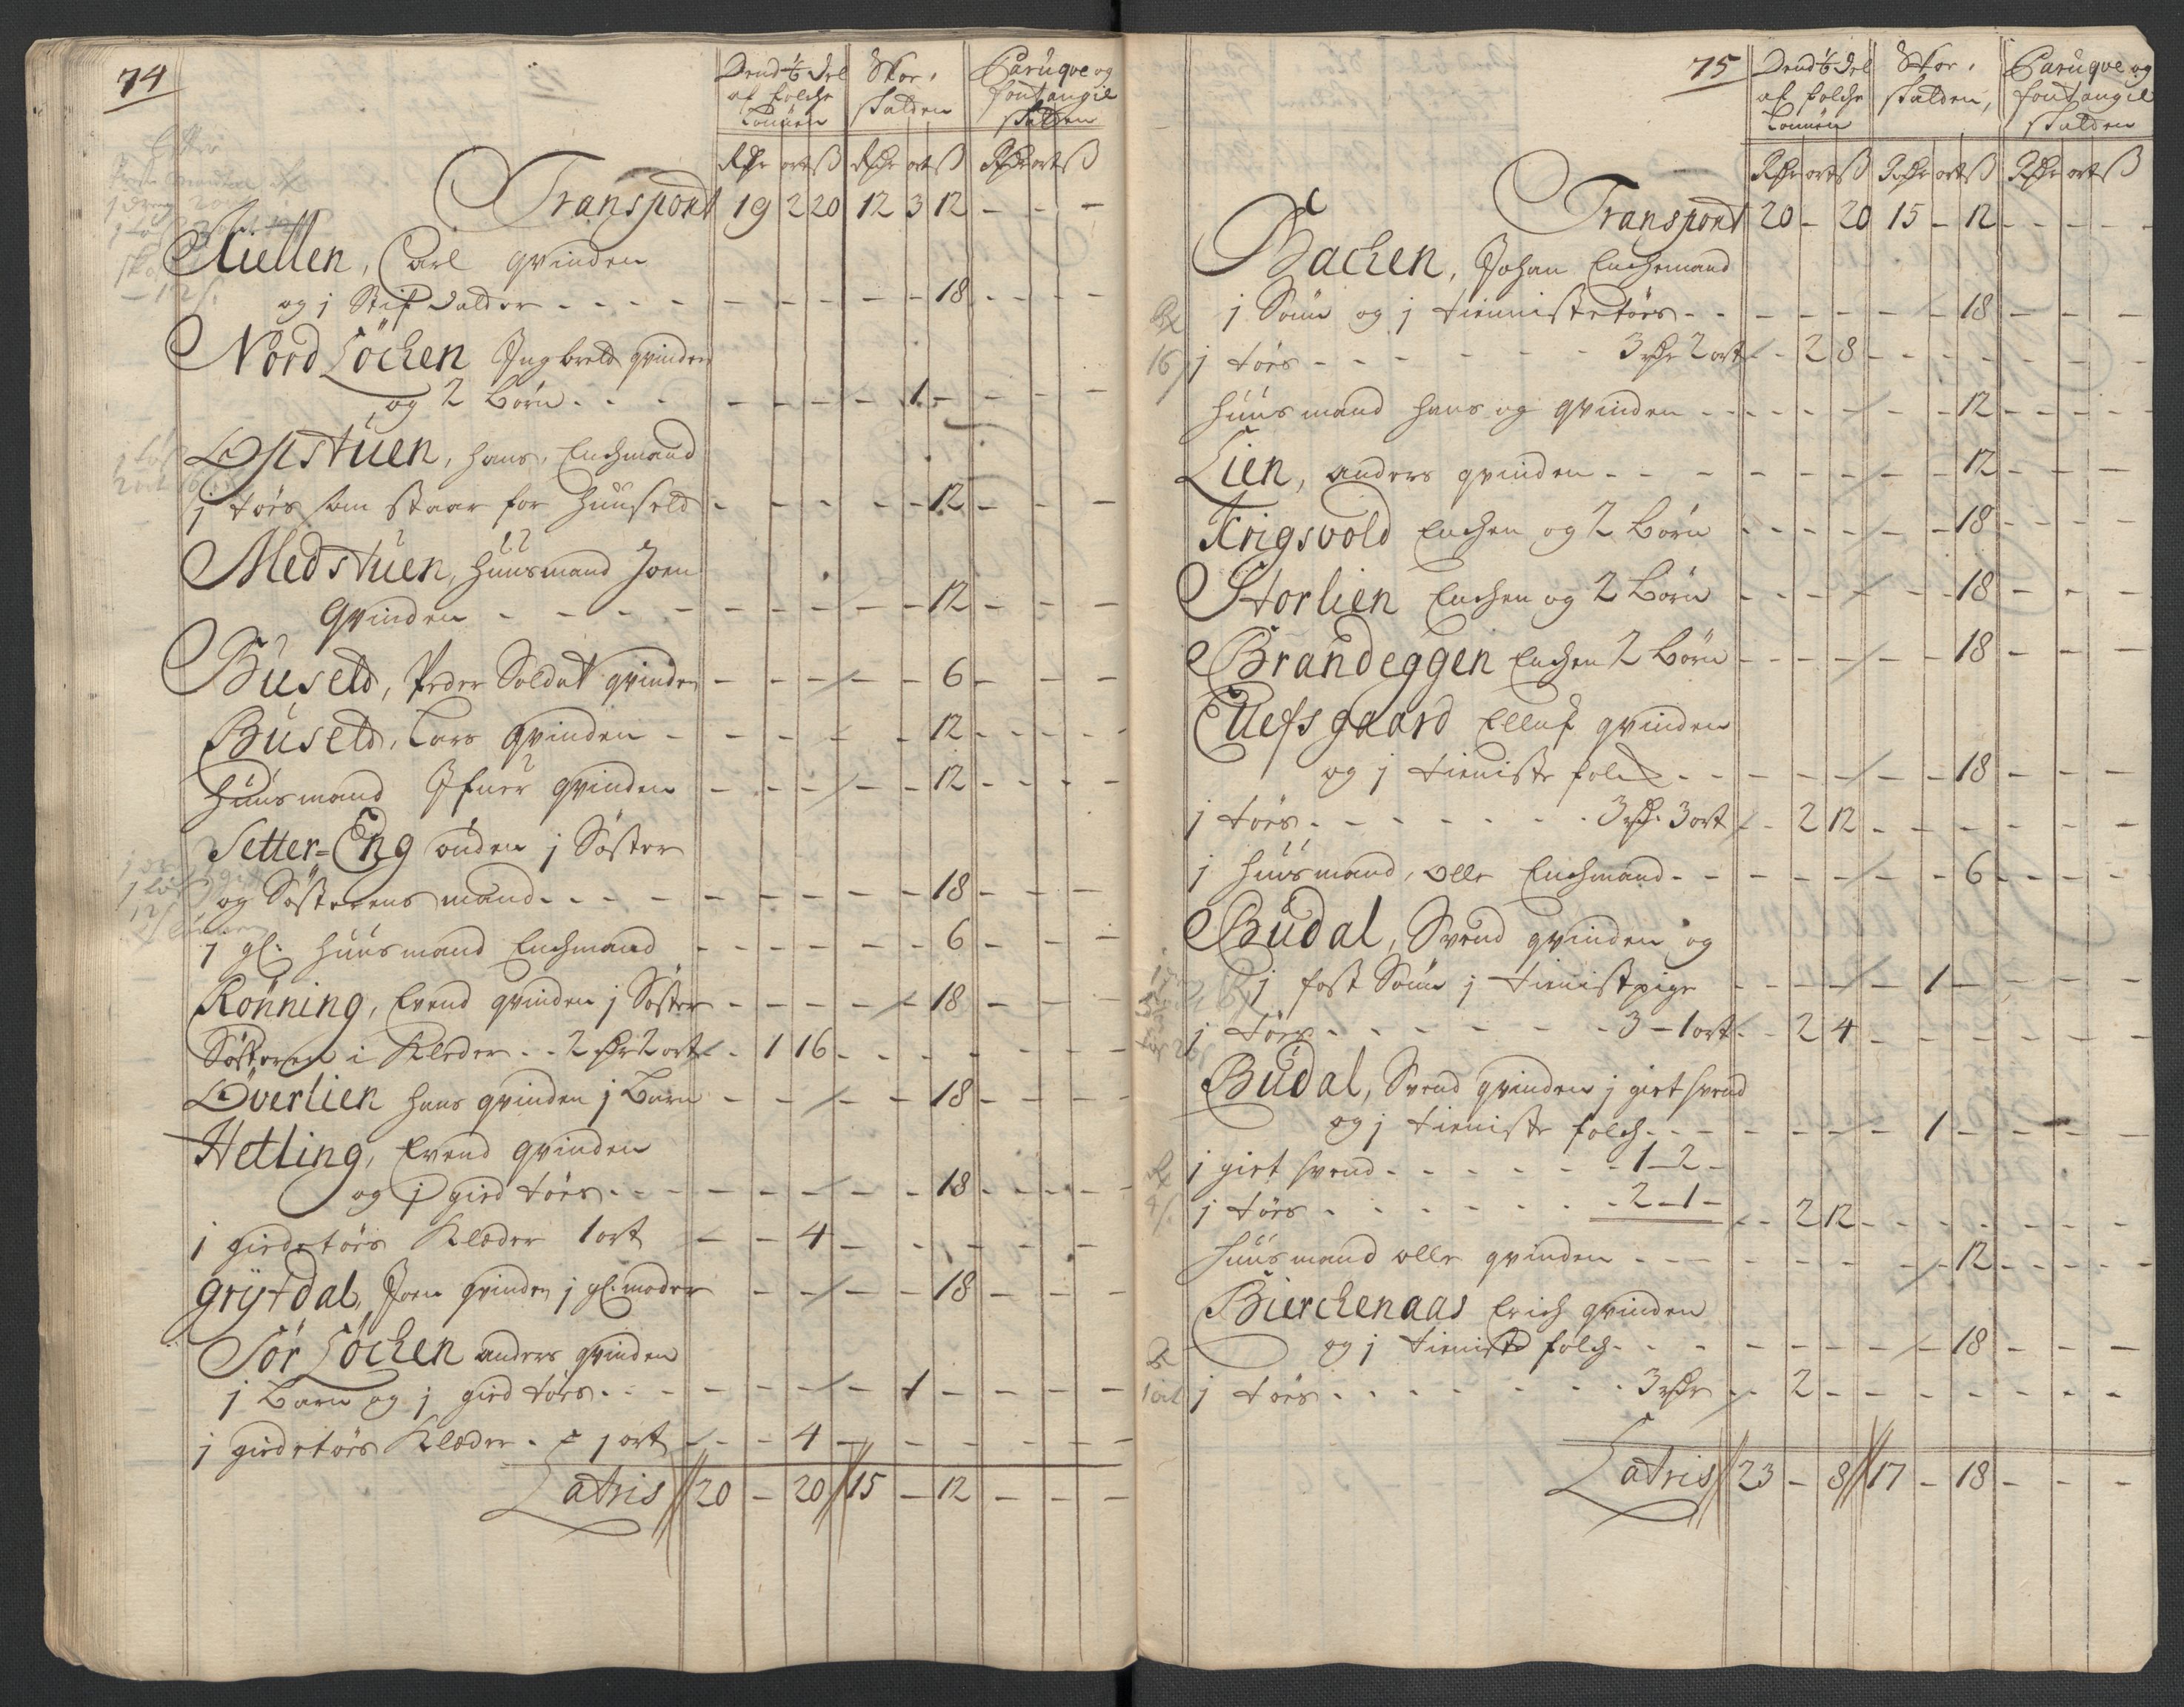 74
Dend 1/6 Deel af folche Lønnen
Skoe, skatten
Paruqve og fontangie skatten
Rdr ort ß Rdr ort ß Rdr ort ß
Transport 19 2 20 12 3 12 - - -
Aullen, Carl qvinden
og j Stif datter - - - - 18 - - -
Nord Løchen Ingbret qvinden
og 2 Børn - - - 1 - - - -
Opstuen, hans, Enchmand
j tøes som staar for huuset - - - 12 - - -
Medstuen, huusmand Joen
qvinden - - - - 12 - - -
Buseth, Peder Soldat qvinden - - - 6 - - -
Buseth, Lars qvinden - - - 12 - - -
huusmand Ifuer qvinden - - - 12 - - -
Setter-Eng
og Søsterens mand - - - 18 - - -
j gl: huusmand Enchmand - - - 6 - - -
Rønning, Evend qvinden j Søster - - - 18 - -
Søsteren i Kleder - - 2 Rdr 2 ort - 1 16 - - -
Overlien hans qvinden j Barn - - - 18 - - -
Hetling, Evend qvinden
og j gied tøes - - - 18 - - -
j giedetøes Klæder 1 ort - - 4 - - -
Grytdal, Joen qvinden j gl: moder - - - 18 - - -
Sør Løchen anders qvinden
j Barn og j gied tøes - - - 1 - - - -
j giedetøes Klæder - j ort - - 4 - - -
Latris 20 - 20 15 - 12 - - -
75
Dend 1/6 Deel af folche Lønnen
Skoe, skatten,
Paruqve og fontangie skatten
Rdr ort ß Rdr ort ß Rdr ort ß
Transport 20 - 20 15 - 12 - - -
Bachen, Johan Enchemand
j Sønn og j tienniste tøes - - - 18 - - -
j tøes - - - 3 Rdr 2 ort - 2 8 - - -
huusmand hans og qvinden - - - 12 - - -
Lien, anders qvinden - - - 12 - - -
Krigsvold Enchen og 2 Børn - - - 18 - - -
Storlien Enchen og 2 Børn - - - 18 - - -
Brandeggen Enchen 2 Børn - - - 18 - - -
Ellefsgaard Ellef qvinden
og j tieniste folch - - - 18 - - -
j tøes - - - 3 Rdr 3 ort - 2 12 - - -
j huusmand, Olle Enchmand - - - 6 - - -
Budal, Svend qvinden og
j fost Sønn j tienistpige - - - 1 - - - -
j tøes - - - 3 - 1 ort - 2 4 - - -
Budal, Svend qvinden j giet svend
og j tieniste folch - - - 1 - - - -
j giet svend - - - 1 - 2 -
j tøes - - - 2 - 1 - - 2 12 - - -
huusmand olle qvinden - - - 12 - - -
Bierchenaas Erich qvinden
og j tieniste folch - - - 18 - - -
j tøes - - - 3 Rdr - 2 - - - -
Latris 23 - 8 17 - 18 - - -